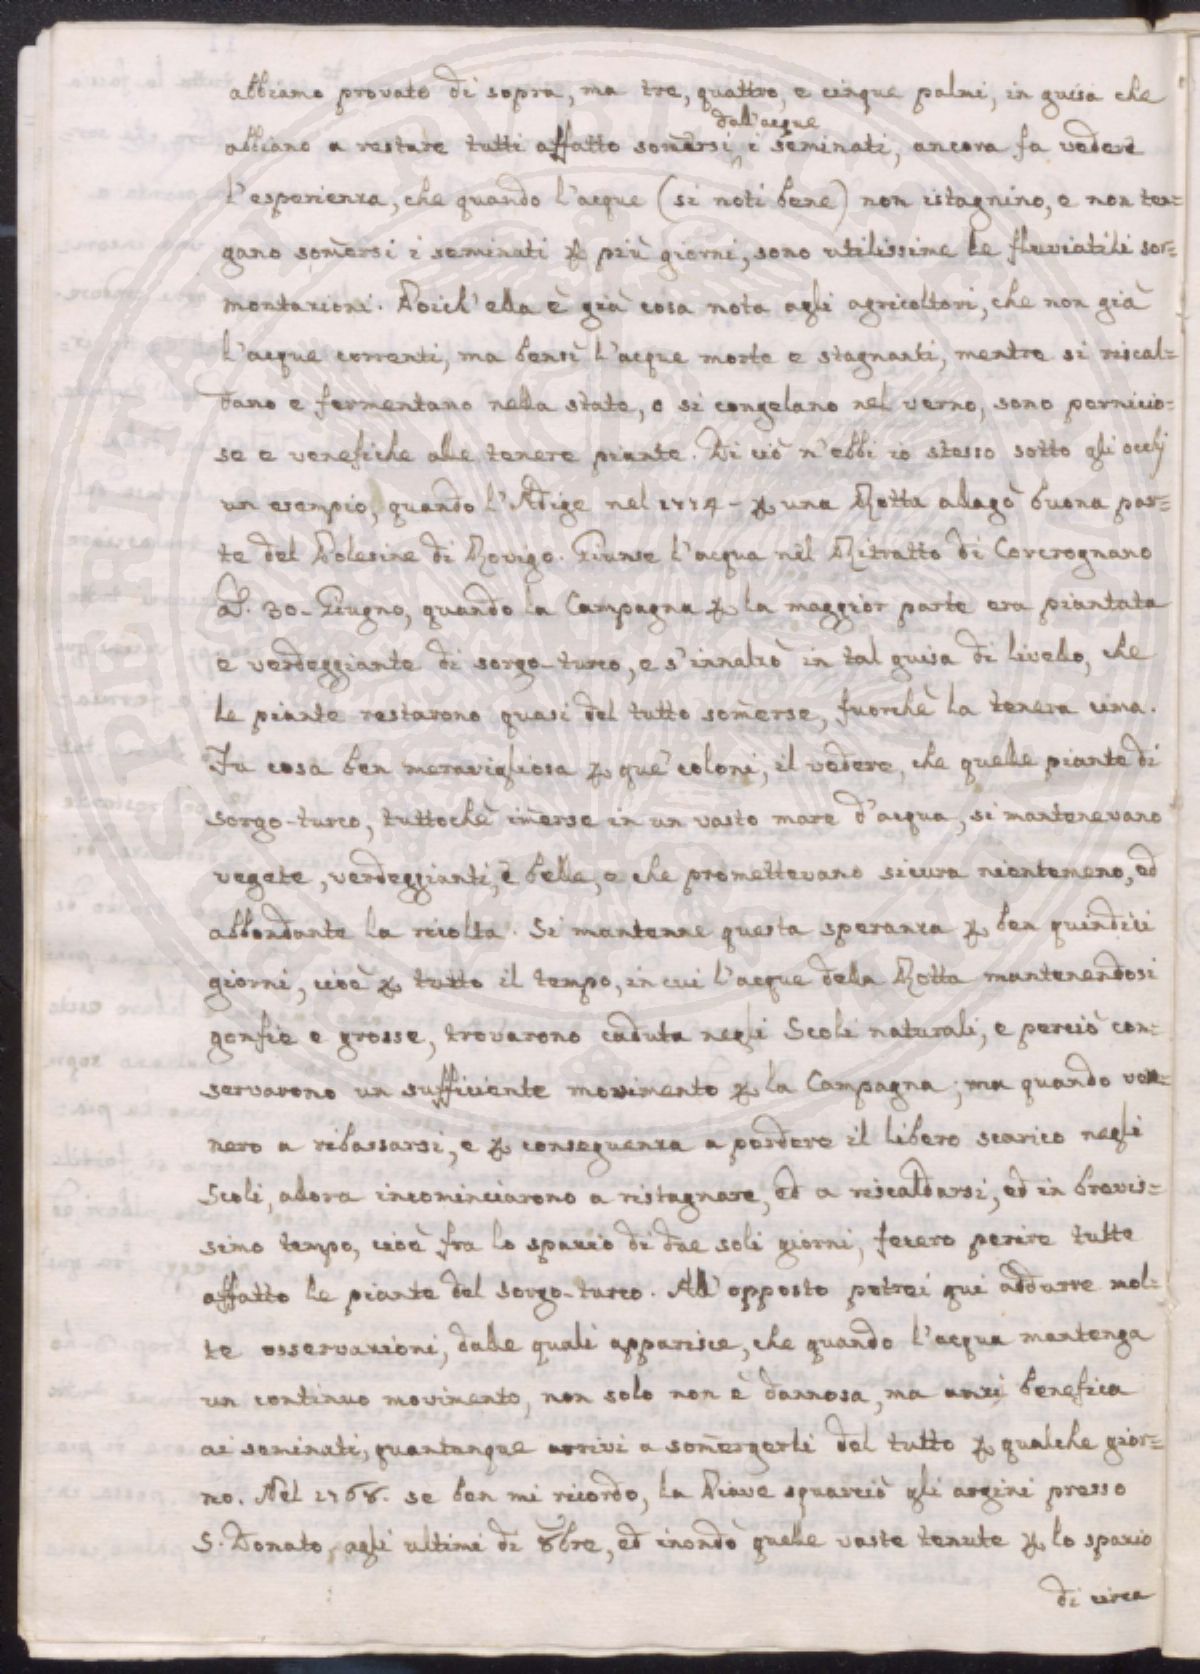 abbiamo provato di sopra, ma tre, quattro, e cinque palmi, in guisa che
dall'acque
abbiano a restare tutti affatto som̃ersi i seminati, ancora fa vedere
l'esperienza, che quando l'acque (si noti bene) non istagnino, e non ten=
gano som̃ersi i seminati ꝑ più giorni, sono utilissime le fluviatili sor=
montazioni. Poich'ella è già cosa nota agli agricoltori, che non già
l'acque correnti, ma bensì l'acque morte e stagnanti, mentre si riscal=
dano e fermentano nella state, o si congelano nel verno, sono pernicio=
se e venefiche alle tenere piante. Di ciò n'ebbi io stesso sotto gli occhj
un esempio, quando l'Adige nel 1774 - ꝑ una Rotta allagò buona par=
te del Polesine di Rovigo. Giunse l'acqua nel Ritratto di Corcrognano
30 - Giugno, quando la Campagna ꝑ la maggior parte era piantata
e verdeggiante di sorgo-turco, e s'innalzò in tal guisa di livello, che
le piante restarono quasi del tutto som̃erse, fuorchè la tenera cima.
Fu cosa ben meravigliosa ꝑ que' coloni, il vedere, che quelle piante di
sorgo-turco, tuttochè im̃erse in un vasto mare d'acqua, si mantenevano
vegete, verdeggianti, e belle, e che promettevano sicura nientemeno, ed
abbondante la ricolta. Si mantenne questa speranza ꝑ ben quindici
giorni, cioè ꝑ tutto il tempo, in cui l'acque della Rotta mantenendosi
gonfie e grosse, trovarono caduta negli Scoli naturali, e perciò con=
servarono un sufficiente movimento ꝑ la Campagna; ma quando ven=
nero a ribassarsi, e ꝑ conseguenza a perdere il libero scarico negli
Scoli, allora incominciarono a ristagnare, ed a riscaldarsi, ed in brevis=
simo tempo, cioè fra lo spazio di due soli giorni, fecero perire tutte
affatto le piante del sorgo-turco. All'opposto potrei qui addurre mol=
te osservazioni, dalle quali apparisce, che quando l'acqua mantenga
un continuo movimento, non solo non è dannosa, ma anzi benefica
ai seminati, quantunque arrivi a som̃ergerli del tutto ꝑ qualche gior=
no. Nel 1768. se ben mi ricordo, la Piave squarciò gli argini presso
S. Donato, agli ultimi di 8bre, ed inondò quelle vaste tenute ꝑ lo spazio
di circa